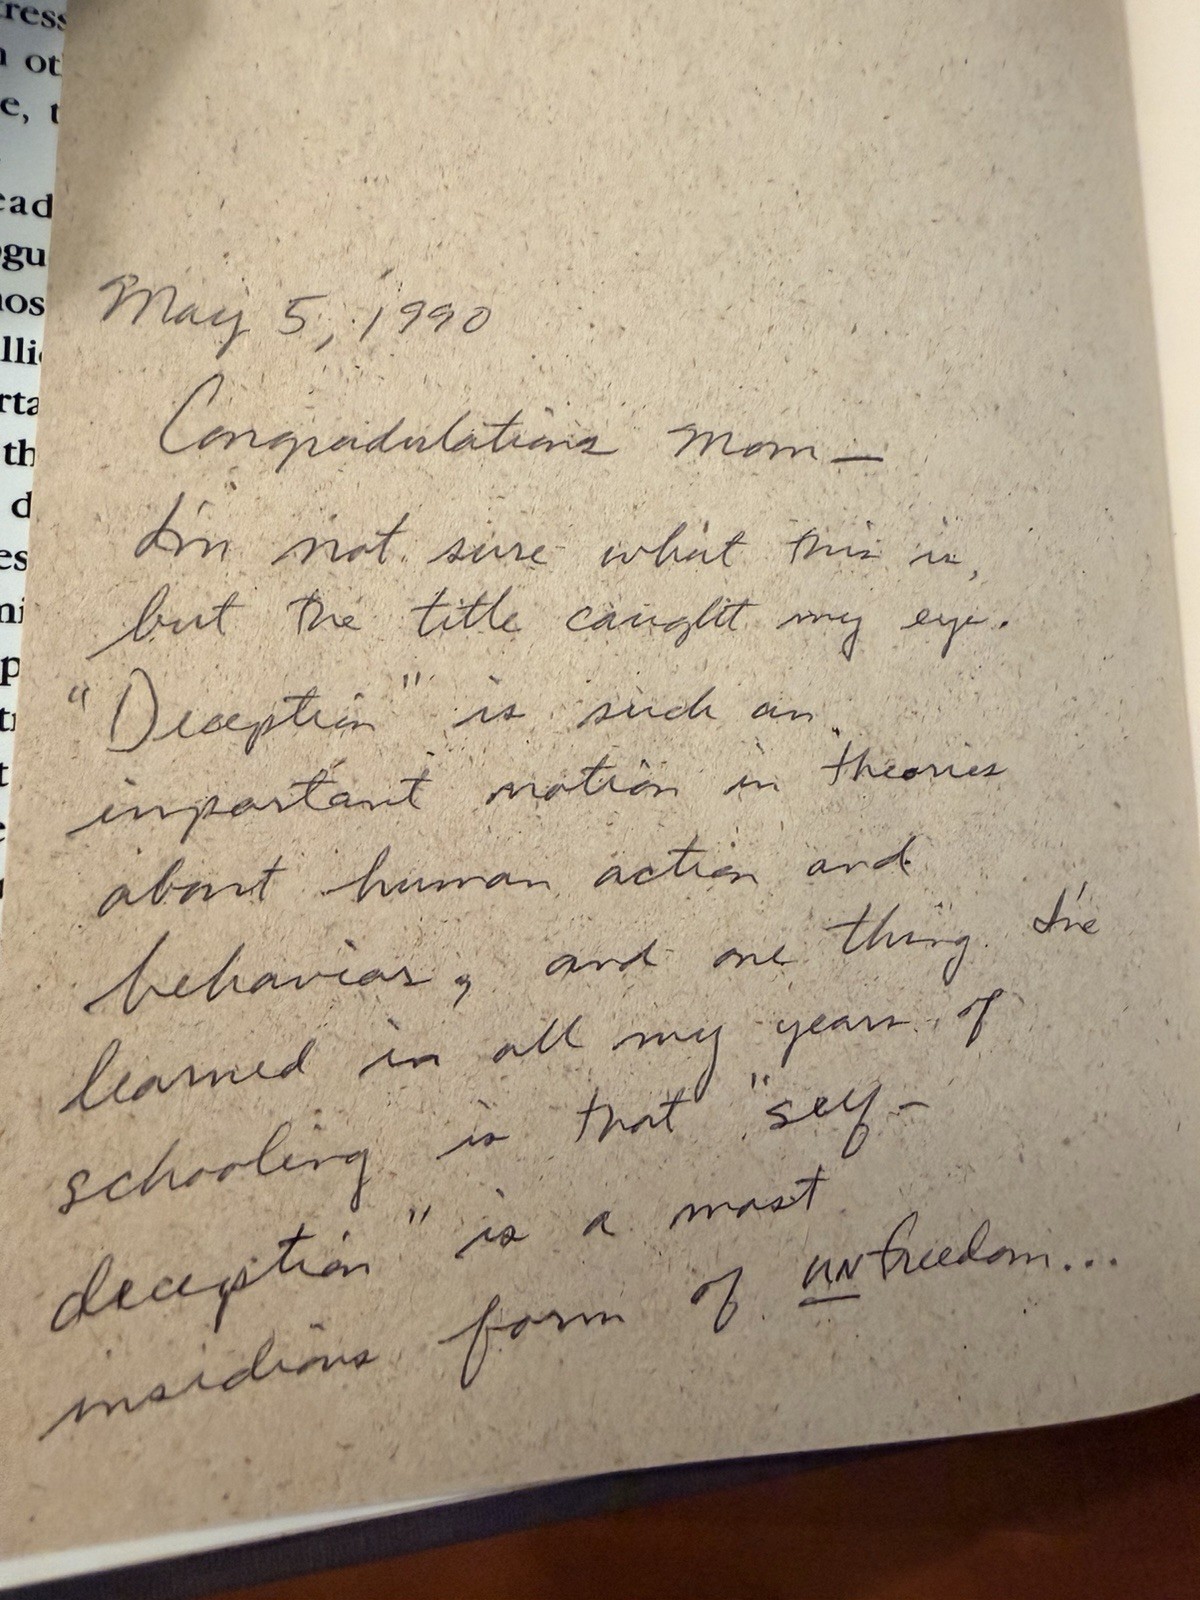 tress
n ot
e, t
ead
ogu
nos
llie
rta
th
d
es
mi
p
t
May 5, 1990
Congradulations Mom —
I'm not sure what this is,
but the title caught my eye.
"Deception" is such an
important notion in theories
about human action and
behavior, and one thing I've
learned in all my years of
schooling is that "self-
deception" is a most
insidious form of unfreedom...